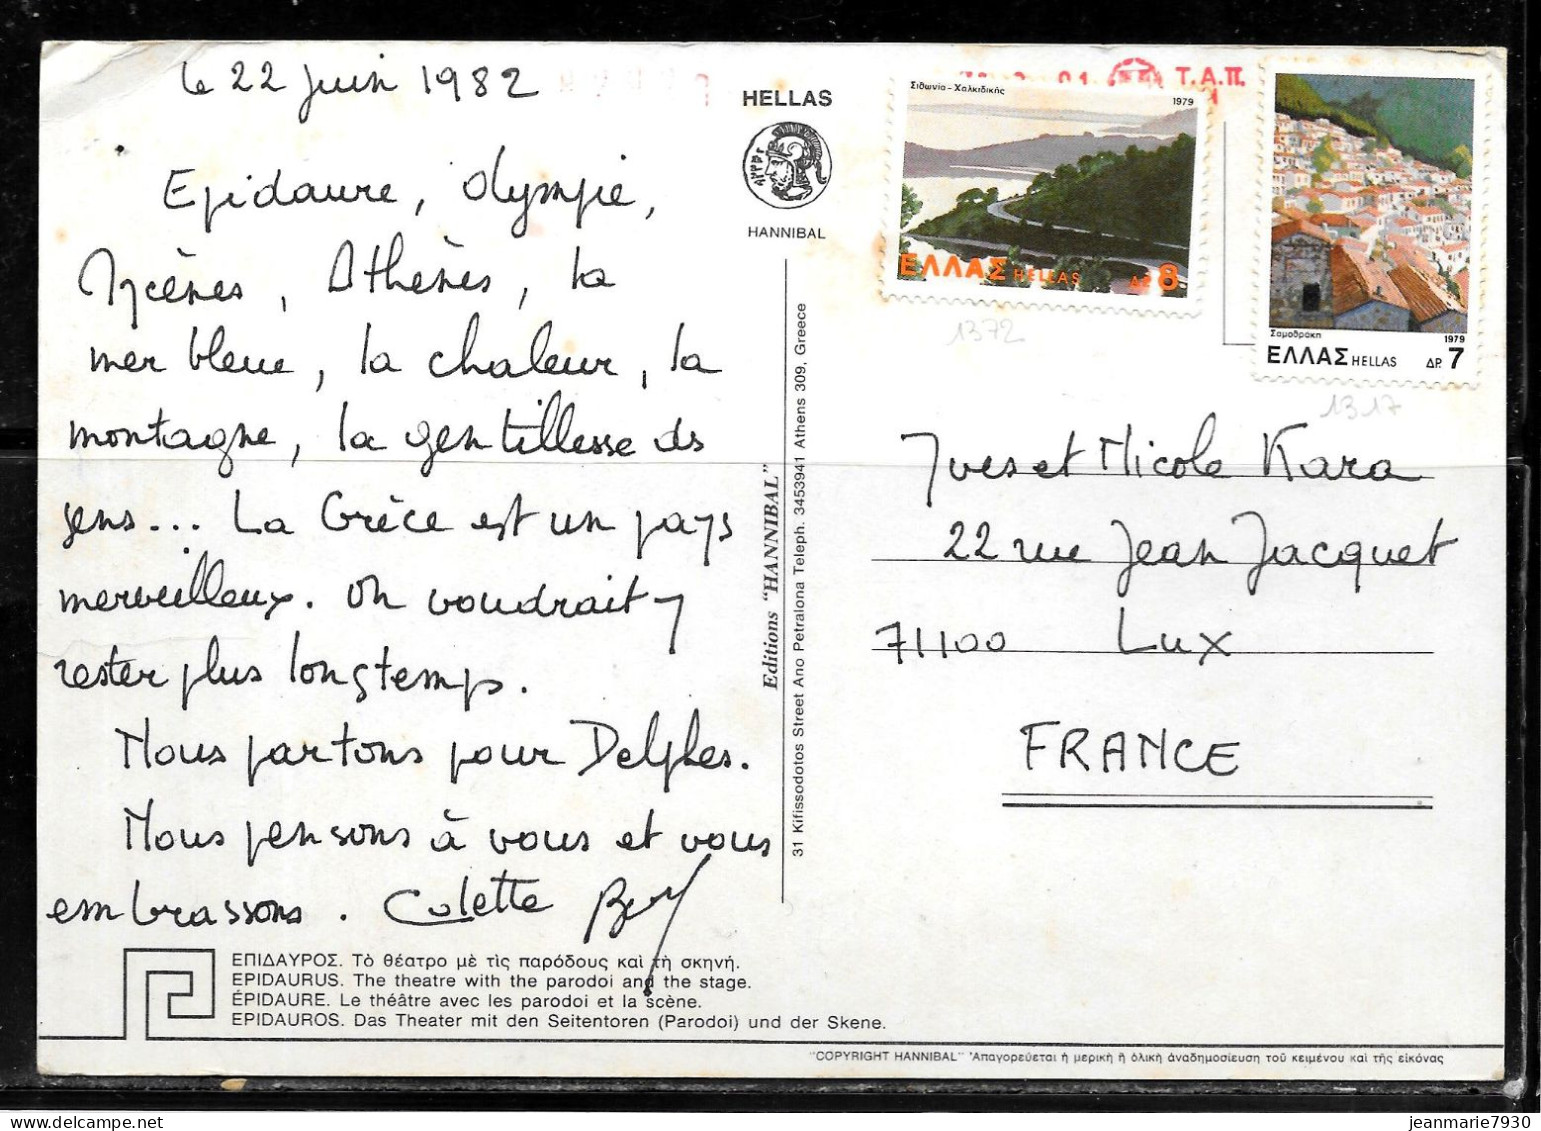 le 22 juin 1982
Epidaure, Olympie,
Mycènes, Athènes, la
mer bleue, la chaleur, la
montagne, la gentillesse des
gens... La Grèce est un pays
merveilleux. On voudrait y
rester plus longtemps.
Nous partons pour Delphes.
Nous pensons à vous et vous
embrassons. Colette
ΕΠΙΔΑΥΡΟΣ. Τὸ θέατρο μὲ τὶς παρόδους καὶ τὴ σκηνή.
EPIDAURUS. The theatre with the parodoi and the stage.
ÉPIDAURE. Le théâtre avec les parodoi et la scène.
EPIDAUROS. Das Theater mit den Seitentoren (Parodoi) und der Skene.
HELLAS
HANNIBAL
Editions "HANNIBAL"
31 Kifissodotos Street Ano Petralona Teleph. 3453941 Athens 309, Greece
Τ.Α.Π.
Σιθωνία - Χαλκιδικής
1979
ΕΛΛΑΣ HELLAS ΔΡ. 8
1372
Σαμοθράκη 1979
ΕΛΛΑΣ HELLAS ΔΡ. 7
1317
Yves et Nicole Kara
22 rue Jean Jacquet
71100 Lux
FRANCE
"COPYRIGHT HANNIBAL" Ἀπαγορεύεται ἡ μερικὴ ἢ ὁλικὴ ἀναδημοσίευση τοῦ κειμένου καὶ τῆς εἰκόνας
jeanmarie7930